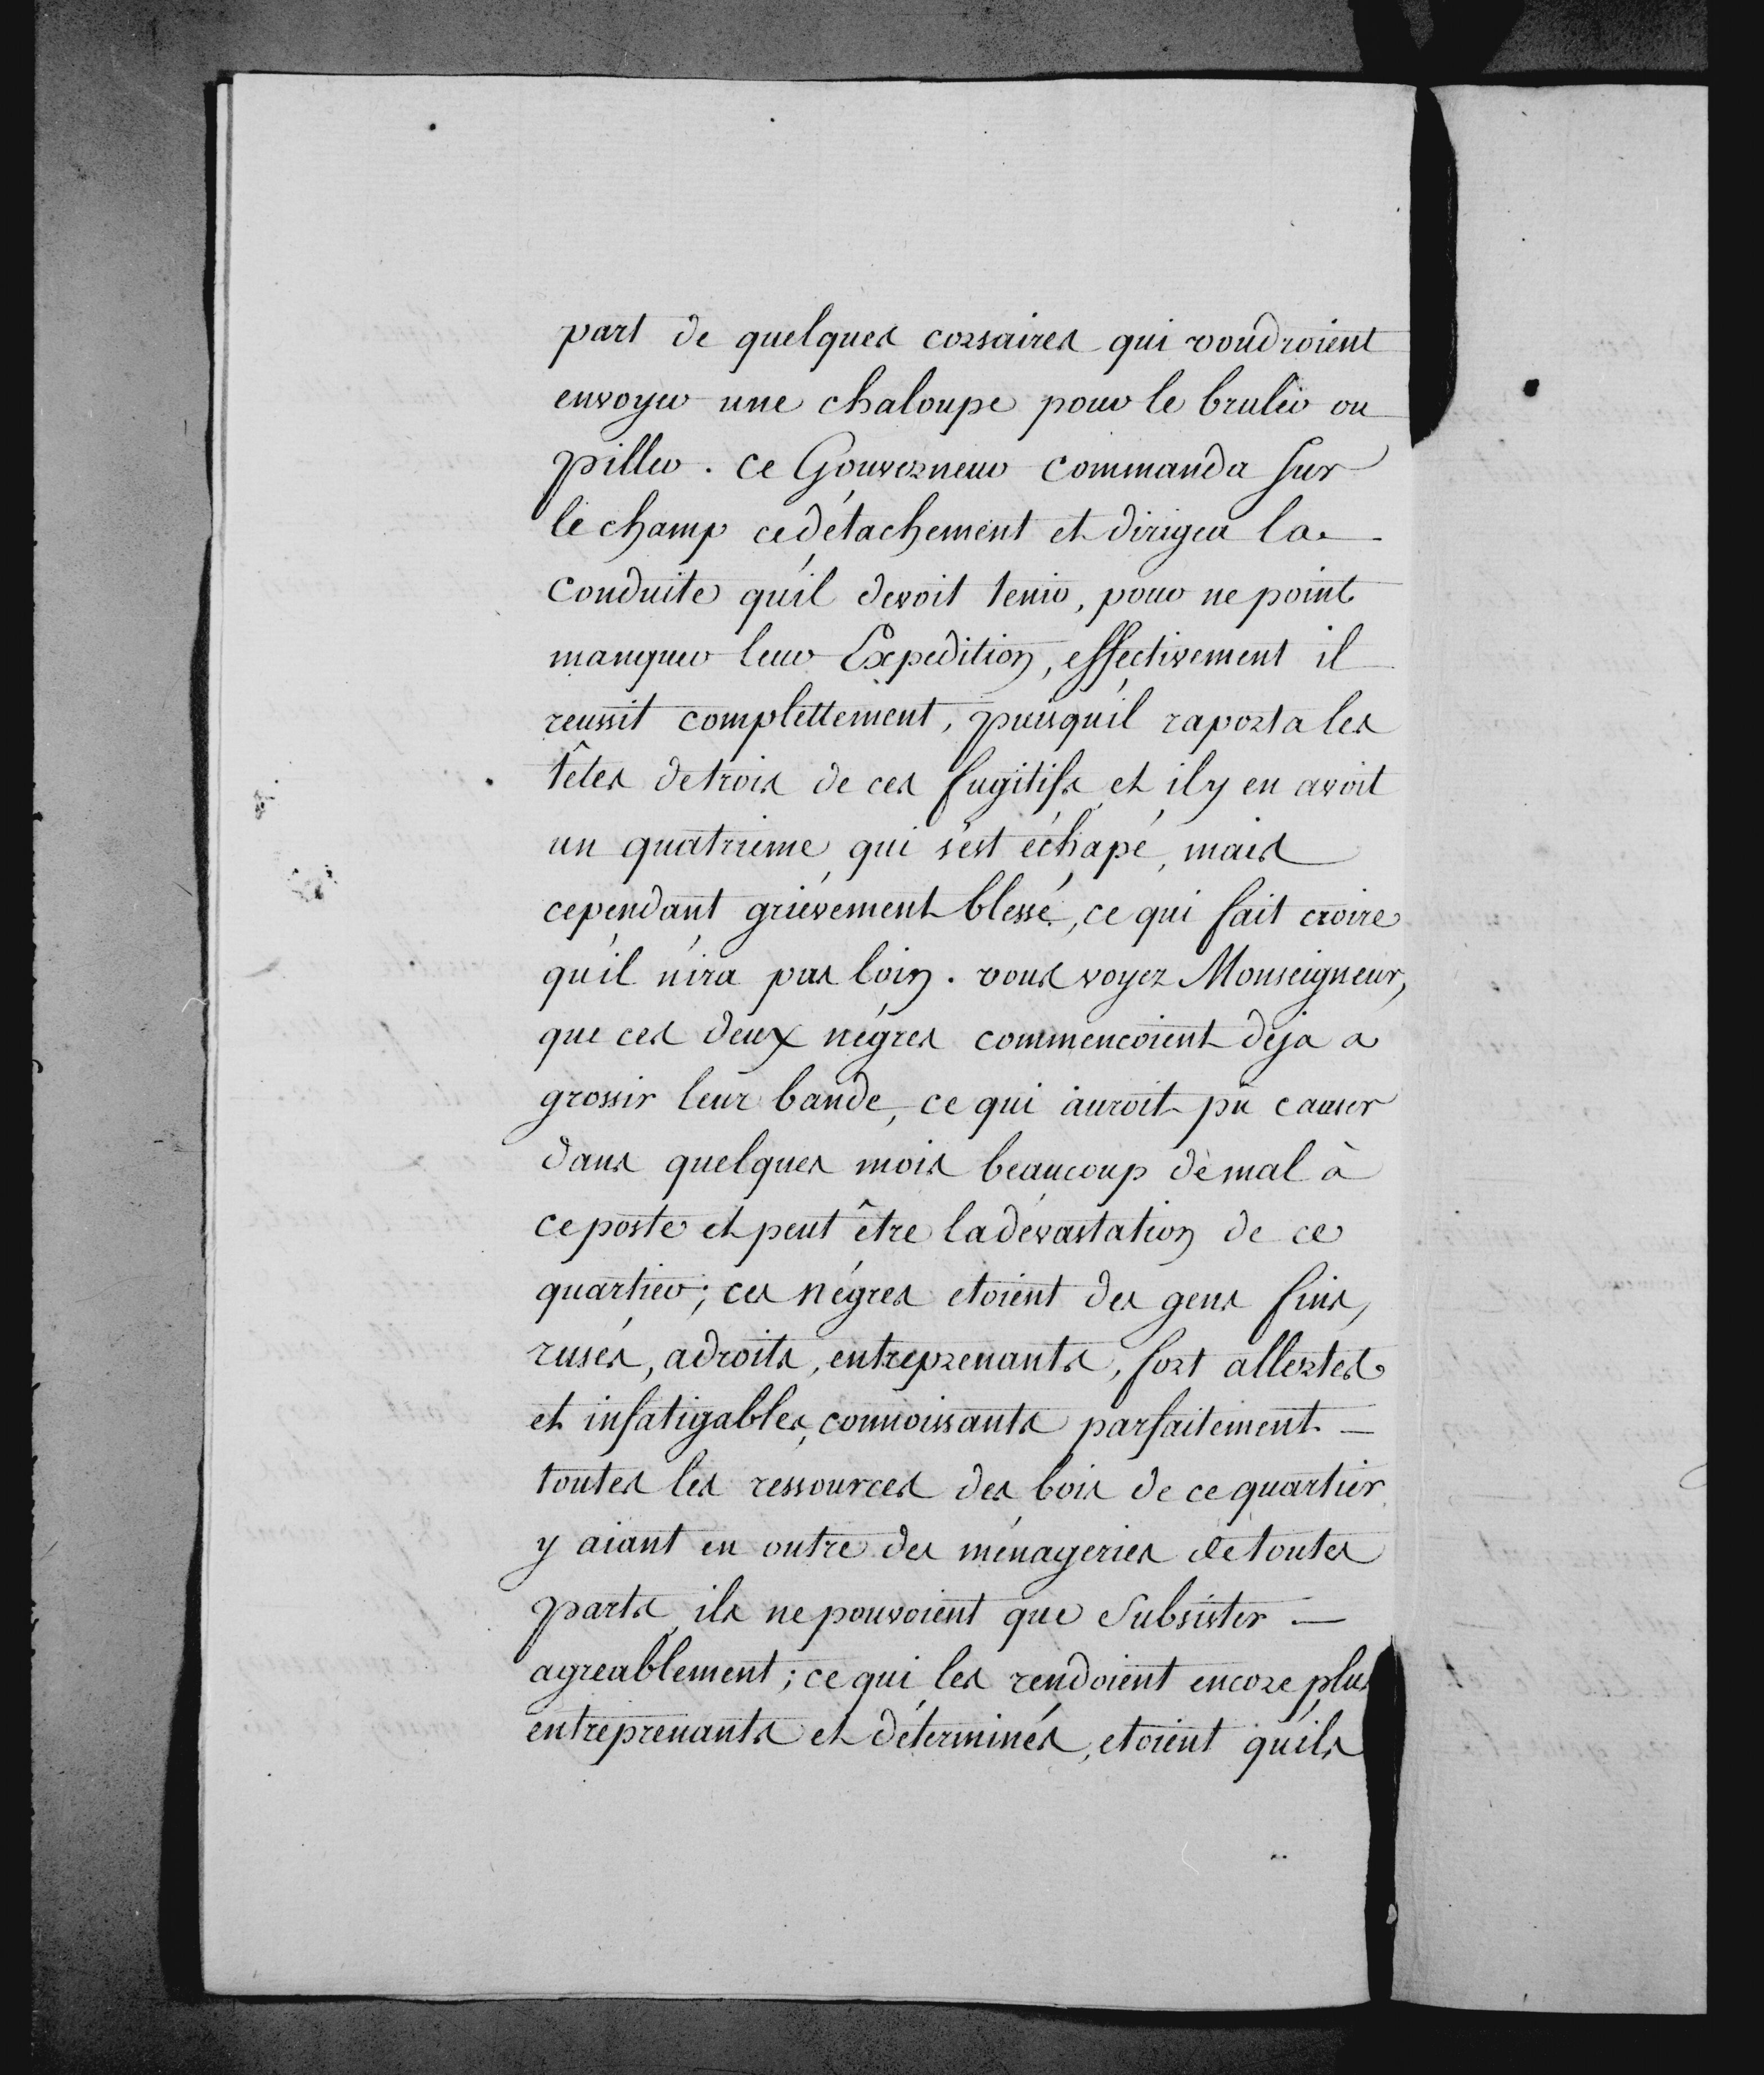 part de quelques corsaires qui voudroient
envoyer une chaloupe pour le bruler ou
piller. ce Gouverneur commanda sur
le champ ce détachement et dirigea la
conduite qu'il devoit tenir, pour ne point
manquer leur Expedition, effectivement il
reussit complettement, puisqu'il raporta les
têtes de trois de ces fugitifs et il y en avoit
un quatrieme qui s'est échapé, mais
cependant griévement blessé, ce qui fait croire
qu'il n'ira pas loin. vous voyez Monseigneur,
que ces deux négres commencoient deja a
grossir leur bande, ce qui auroit pû causer
dans quelques mois beaucoup de mal à
ce poste et peut être la dévastation de ce
quartier; ces négres etoient des gens fins,
rusés, adroits, entreprenants, fort allertes
et infatigables, connoissants parfaitement —
toutes les ressources des bois de ce quartier
y aiant en outre des ménageries de toutes
parts, ils ne pouvoient que subsister —
agreablement; ce qui les rendoient encore plus
entreprenants et déterminés, etoient qu'ils